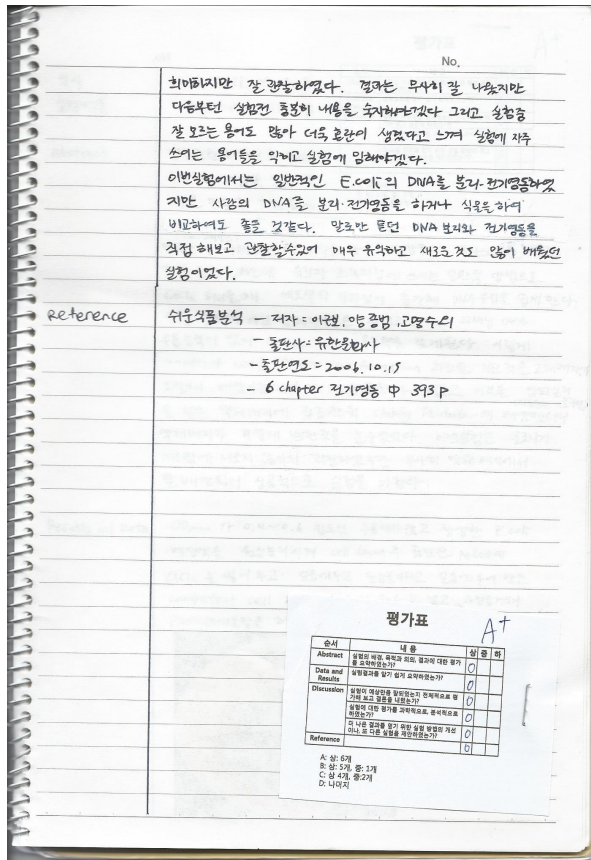 No.
희미하지만 잘 관찰하였다. 결과는 무사히 잘 나왔지만
다음부턴 실험전 충분히 내용을 숙지해야겠다 그리고 실험중
잘 모르는 용어도 많아 더욱 혼란이 생겼다고 느껴 실험에 자주
쓰이는 용어들을 익히고 실험에 임해야겠다.
이번실험에서는 일반적인 E.coli의 DNA를 분리·전기영동하였
지만 사람의 DNA를 분리·전기영동을 하거나 식물을 하여
비교하여도 좋을 것같다. 말로만 듣던 DNA 분리와 전기영동을
직접 해보고 관찰할수있어 매우 유익하고 새로운것도 많이 배웠던
실험이었다.
Reference 쉬운식품분석 - 저자 = 이근보, 양종범, 고명수외
- 출판사 = 유한문화사
- 출판연도 = 2006. 10. 15
- 6 chapter 전기영동 中 393 p
평가표
A+
순서 내 용 상 중 하
Abstract 실험의 배경, 목적과 의의, 결과에 대한 평가
를 요약하였는가? 0
Data and
Results 실험결과를 알기 쉽게 요약하였는가? 0
Discussion 실험이 예상만큼 잘되었는지 전체적으로 평
가해 보고 결론을 내렸는가? 0
실험에 대한 평가를 과학적으로, 분석적으로
하였는가? 0
더 나은 결과를 얻기 위한 실험 방법의 개선
이나, 또 다른 실험을 제안하였는가? 0
Reference 0
A: 상: 6개
B: 상: 5개, 중: 1개
C: 상 4개, 중:2개
D: 나머지